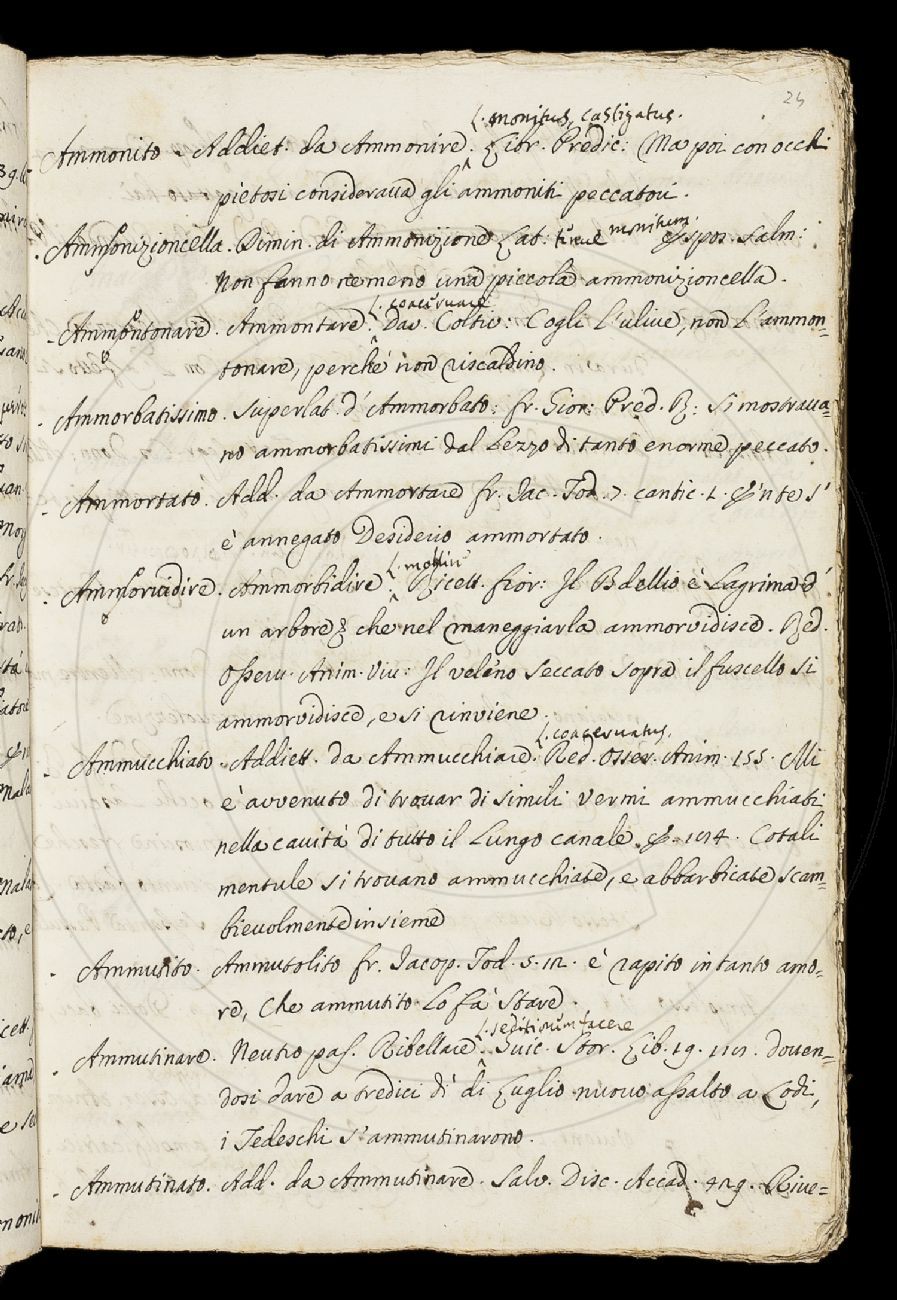 24
L. monitus, castigatus.
Ammonito - Addiet. da Ammonire. Libr. Predic: Ma poi con occhi
pietosi considerava gli ammoniti peccatori.
Ammonizioncella. Dimin. di Ammonizione Lat: monitum. Espos. Salm:
Non fanno ne meno una piccola ammonizioncella.
L. coacervare
Ammontonare. Ammontare. Dav. Coltiv: Cogli l'ulive, non l'ammon=
tonare, perchè non riscaldino.
Ammorbatissimo. Superlat. d'Ammorbato: fr. Gior: Pred. R: si mostrava=
no ammorbatissimi dal Lezzo di tanto enorme peccato.
Ammortato. Add. da Ammortare fr. Iac. Tod. 7. cantic. 1. E'n te s'
è annegato Desiderio ammortato.
L. mollire
Ammorvidire. Ammorbidire. Ricett. fior: Il Bdellio è Lagrima d'
un arbore che nel maneggiarla ammorvidisce. Red.
Osserv. Anim. Viv: Il veleno seccato sopra il fuscello si
ammorvidisce, e si rinviene.
L. coacervatus.
Ammucchiato - Addiett. da Ammucchiare. Red. Osser. Anim. 155. Mi
è avvenuto di trovar di simili vermi ammucchiati
nella cavità di tutto il Lungo canale. E. 194. Cotali
mentule si trovano ammucchiate, e abbarbicate scam=
bievolmente insieme
Ammutito. Ammutolito fr. Iacop. Tod. 5. 12. è rapito in tanto amo=
re, Che ammutito Lo fà stare.
L. seditionem facere
Ammutinare. Neutro pas. Ribellare. Guic. Stor. Lib. 19. 1101. doven=
dosi dare a tredici dì di Luglio nuovo assalto a Lodi,
i Tedeschi s'ammutinarono.
Ammutinato. Add. da Ammutinare. Salv. Disc. Accad. 429. Rive=